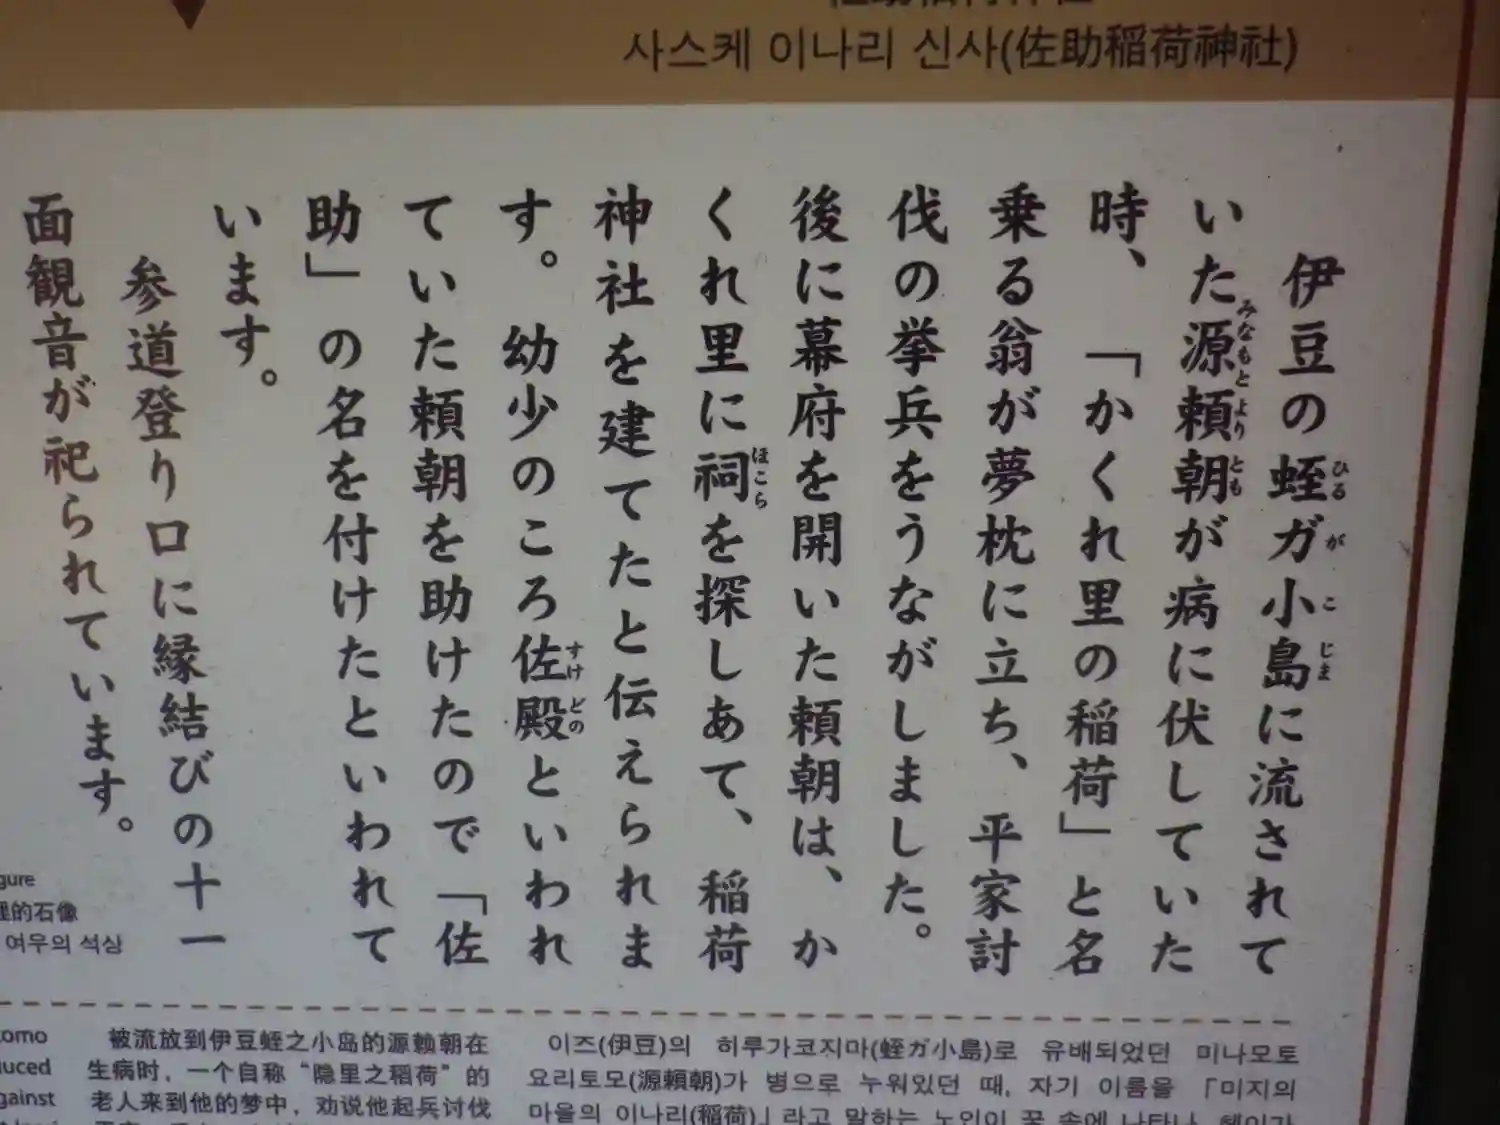 사스케 이나리 신사(佐助稲荷神社)
伊豆の蛭ガ小島に流されて
いた源頼朝が病に伏していた
時、「かくれ里の稲荷」と名
乗る翁が夢枕に立ち、平家討
伐の挙兵をうながしました。
後に幕府を開いた頼朝は、か
くれ里に祠を探しあて、稲荷
神社を建てたと伝えられま
す。幼少のころ佐殿といわれ
ていた頼朝を助けたので「佐
助」の名を付けたといわれて
います。
参道登り口に縁結びの十一
面観音が祀られています。
ひる が こ じま
みなもと より とも
ほこら
すけ どの
的石像
여우의 석상
against
被流放到伊豆蛭之小岛的源赖朝在
生病时，一个自称“隐里之稻荷”的
老人来到他的梦中，劝说他起兵讨伐
이즈(伊豆)의 히루가코지마(蛭ガ小島)로 유배되었던 미나모토
요리토모(源頼朝)가 병으로 누워있던 때, 자기 이름을 「미지의
마을의 이나리(稲荷)」라고 말하는 노인이 꿈 속에 나타나